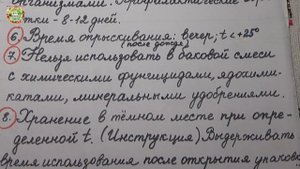 организмами. Профилактические обра-
тки - 8-12 дней.
6. Время опрыскивания: вечер, t < +25°
(после дождя)
7. Нельзя использовать в баковой смеси
с химическими фунгицидами, ядохими-
катами, минеральными удобрениями.
8. Хранение в тёмном месте при опре-
деленной t. (Инструкция) Выдерживать
время использования после открытия упаковк